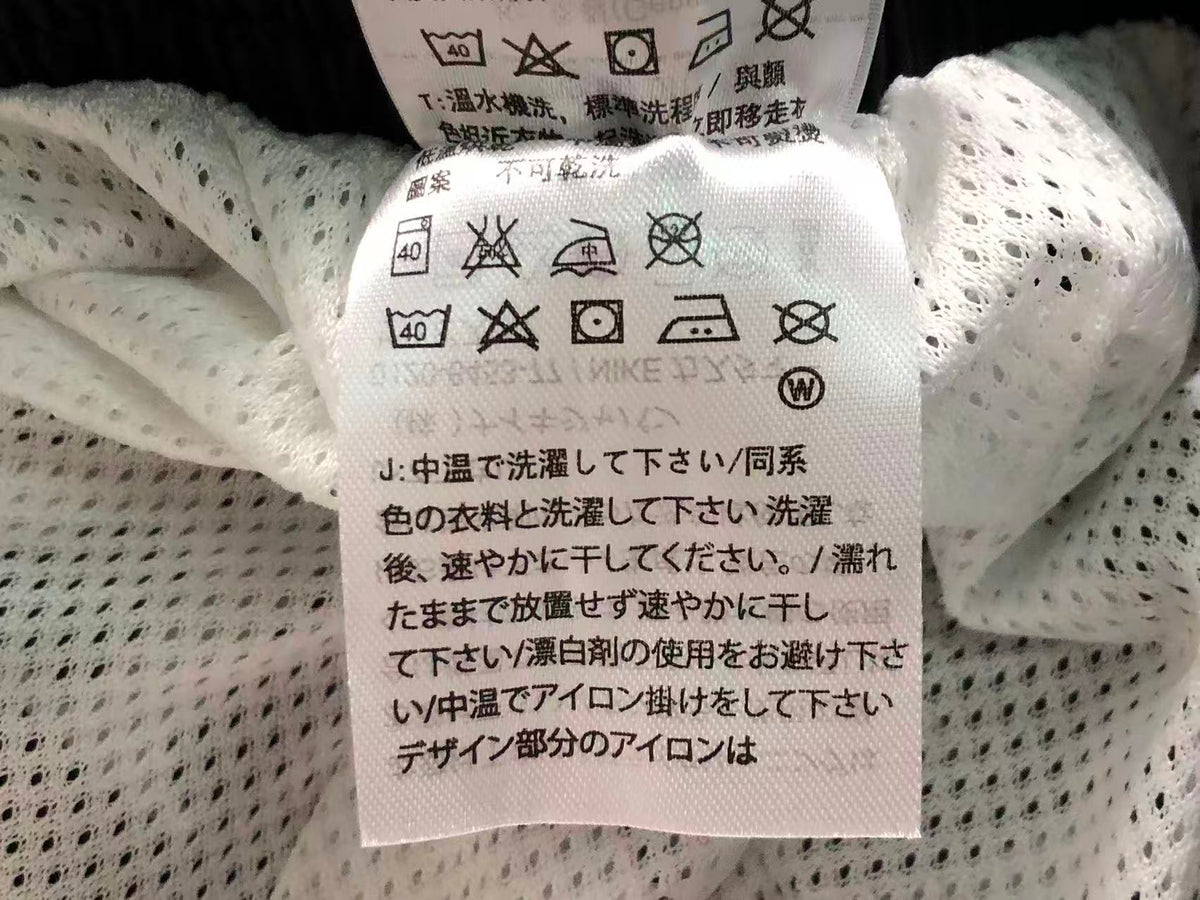 40
T:溫水機洗，標準洗程/與顏
色相近衣物
即移走衣
圖案 不可乾洗
40 中
40
W
J:中温で洗濯して下さい/同系
色の衣料と洗濯して下さい 洗濯
後、速やかに干してください。/濡れ
たままで放置せず速やかに干し
て下さい/漂白剤の使用をお避け下さ
い/中温でアイロン掛けをして下さい
デザイン部分のアイロンは